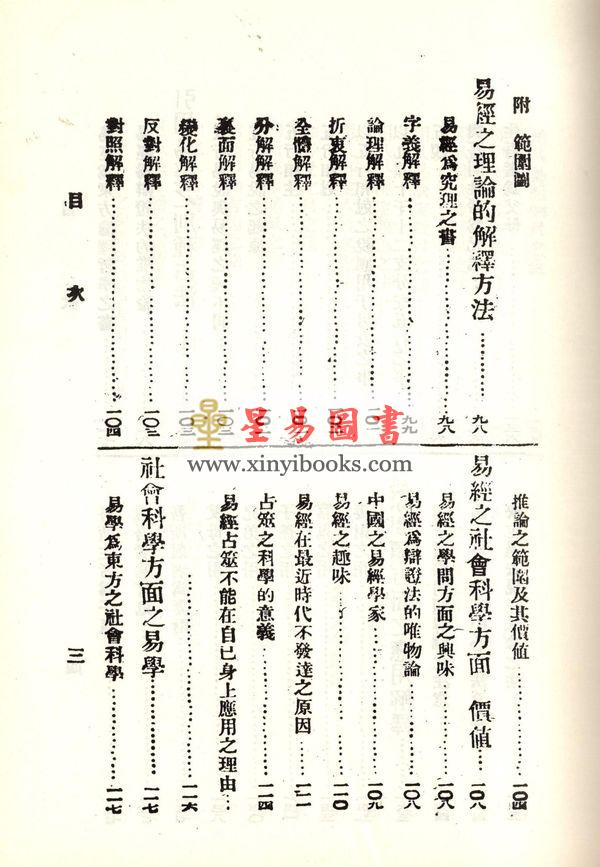 附 範圍圖
易經之理論的解釋方法…………九八
易經爲究理之書…………九八
字義解釋…………九九
論理解釋…………
折衷解釋…………
全體解釋…………
分解解釋…………
裏面解釋…………一〇三
變化解釋…………一〇三
反對解釋…………一〇三
對照解釋…………一〇四
推論之範圍及其價値…………一〇四
易經之社會科學方面 價値……一〇八
易經之學問方面之興味…………一〇八
易經爲辯證法的唯物論…………一〇八
中國之易經學家…………一〇九
易經之趣味…………一一〇
易經在最近時代不發達之原因…………一一一
占筮之科學的意義…………一一四
易經占筮不能在自己身上應用之理由…
…………一一六
社會科學方面之易學…………一一七
易學爲東方之社會科學…………一一七
目 次
三
星易圖書
www.xinyibooks.com